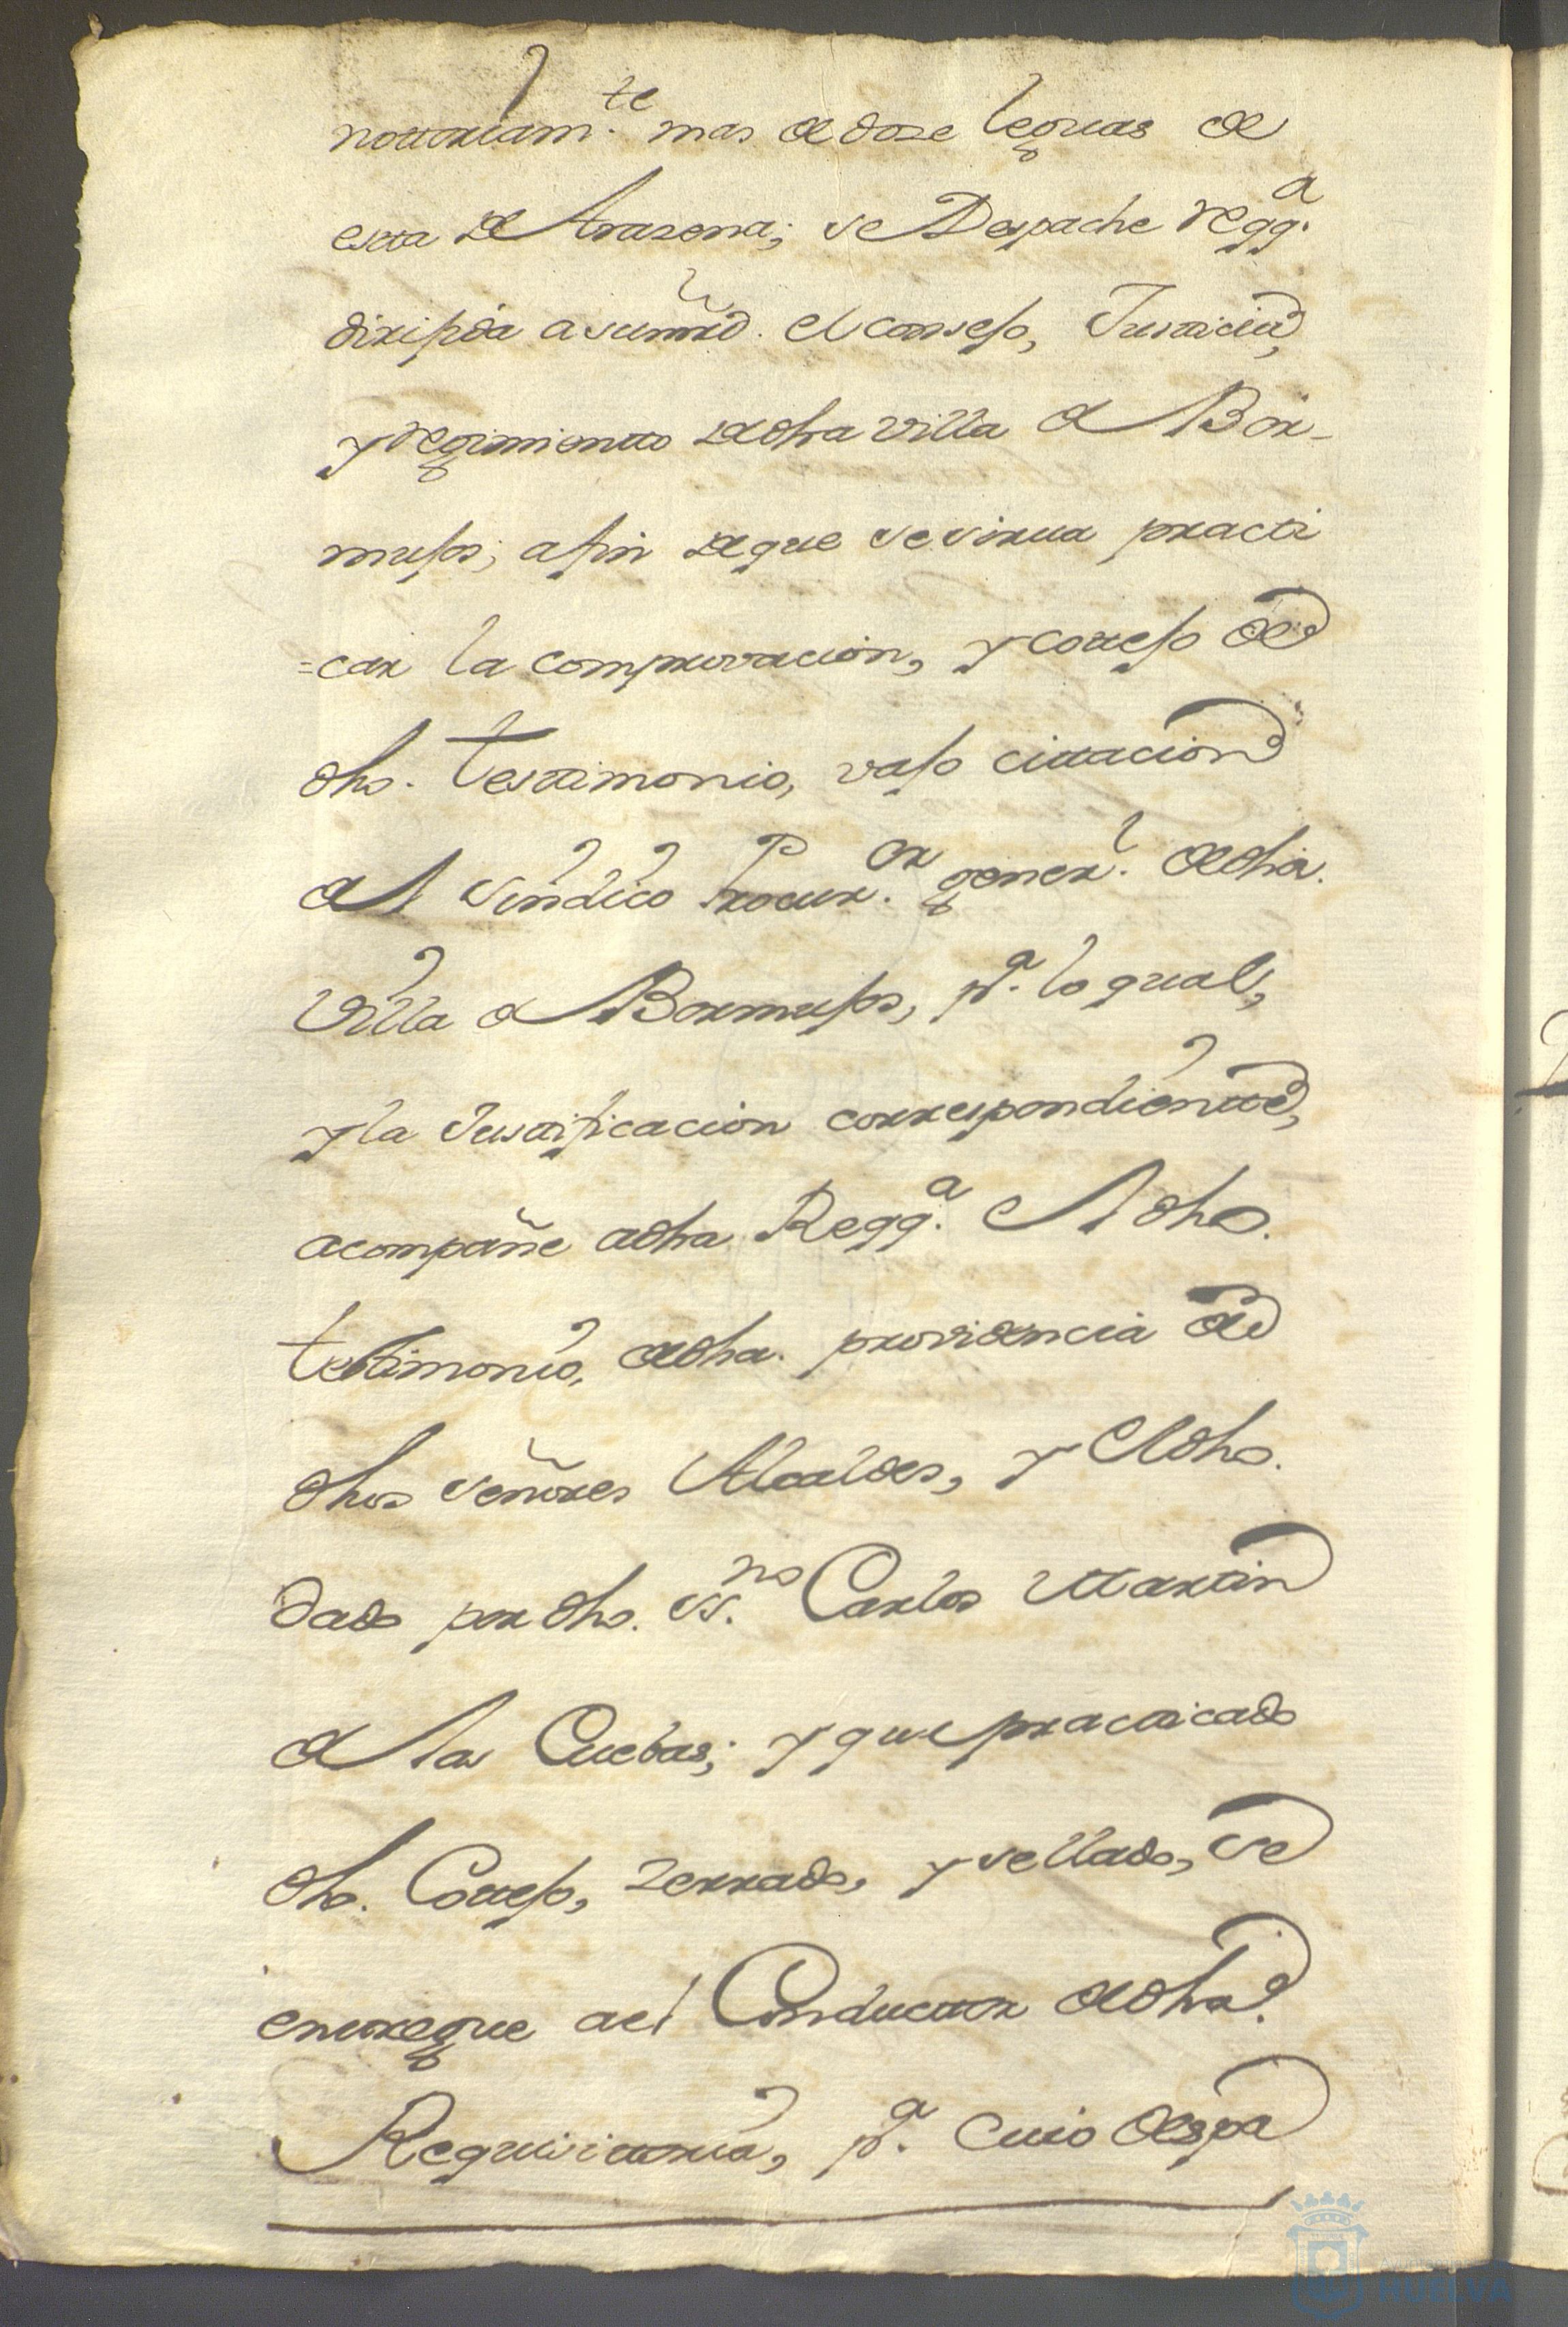 nottoriam.te mas de doze leguas de
esta de Arazena; se Despache regq.a
dirijida a su mrd. el consejo, Justicia,
y regimientto de dha villa de Bor-
mujos; a fin de que se sirva practi
=car la comprovacion, y cottejo de
dho. testtimonio, vajo cittacion
del sindico Procur.or gener.l de dha.
Villa de Bormujos, p.a lo qual,
y la Justtificacion correspondientte,
acompañe a dha Regq.a el dho.
testimonio, de dha. providencia de
dhos señores Alcaldes, y el dho.
dado por dho. ss.no Carlos Martin
de las Cuebas; y que practticado
dho. Cottejo, zerrado, y sellado, se
enttregue ael Conducttor de dha.
Requisittoria, p.a cuio despa
HUELVA